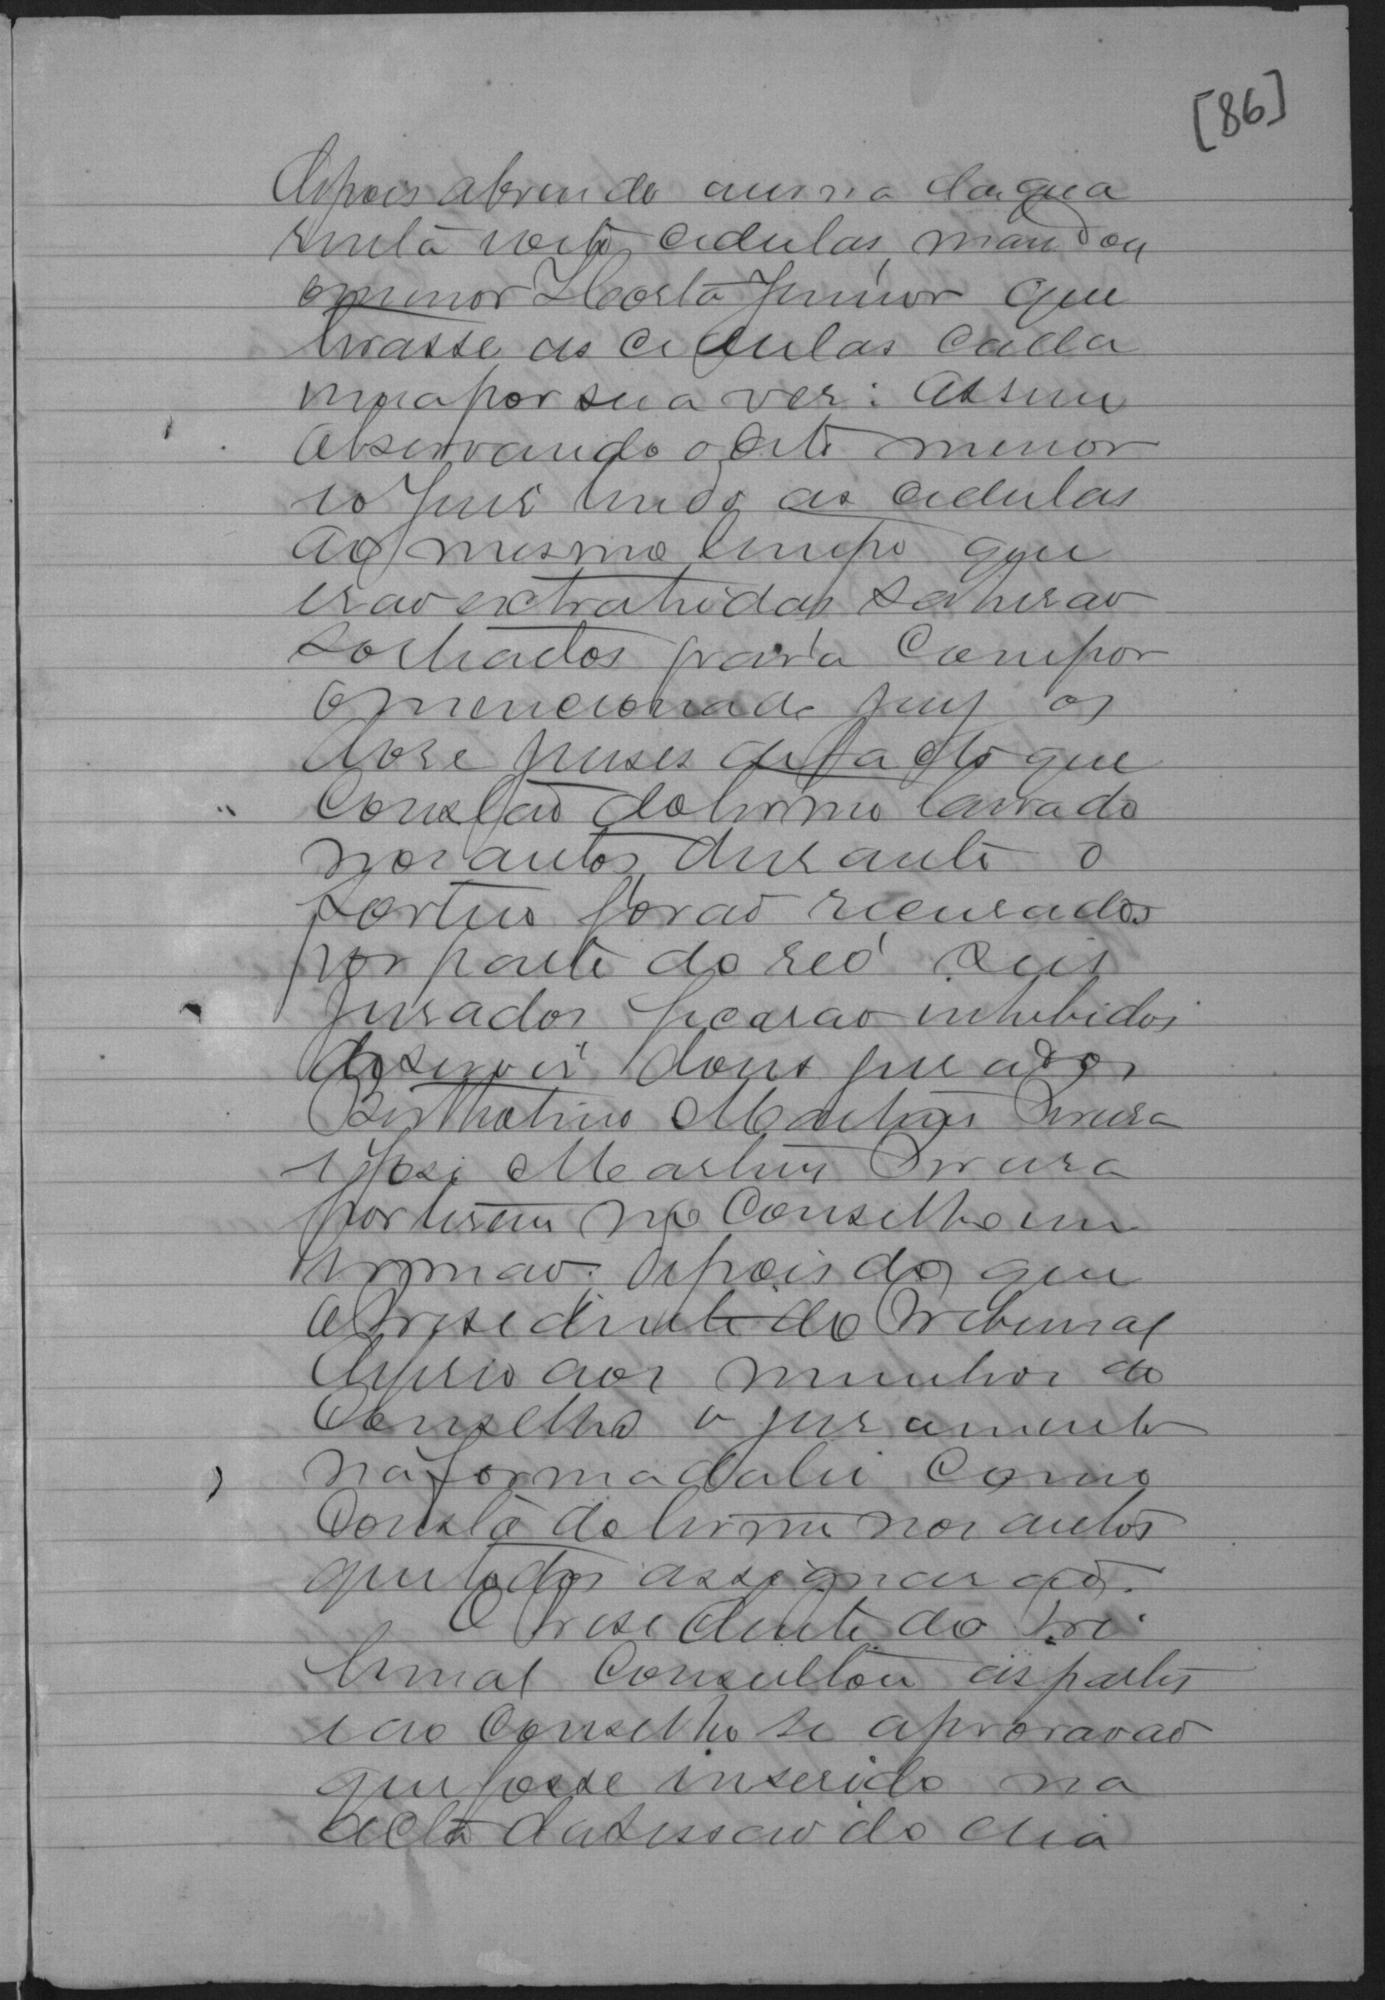 [86]
depois abrindo a urna da qua
renta e oito cedulas, mandou
o menor Horta Junior que
tirasse as cedulas cada
uma por sua vez: assim
observando o dito menor
e o Juiz lendo as cedulas
ao mesmo tempo que
erao extrahidas sahirao
sorteados para compor
o mencionado jury os
dose juises de facto que
Constão do termo lavrado
nos autos, durante o
sorteio forão recusados
por parte do reó seis
jurados ficarao inhibidos
de servir dous jurados
Martins Pereira
e José Martins Pereira
por terem no Conselho um
irmao. Depois do que
o Presidente do Tribunal
deferio aos membros do
Conselho o juramento
na forma da lei como
Consta do termo nos autos
que todos assignarão.
O Presidente do Tri
bunal Consultou as partes
e ao Conselho se aprovavaõ
que fosse inserido na
acta da sessao do dia